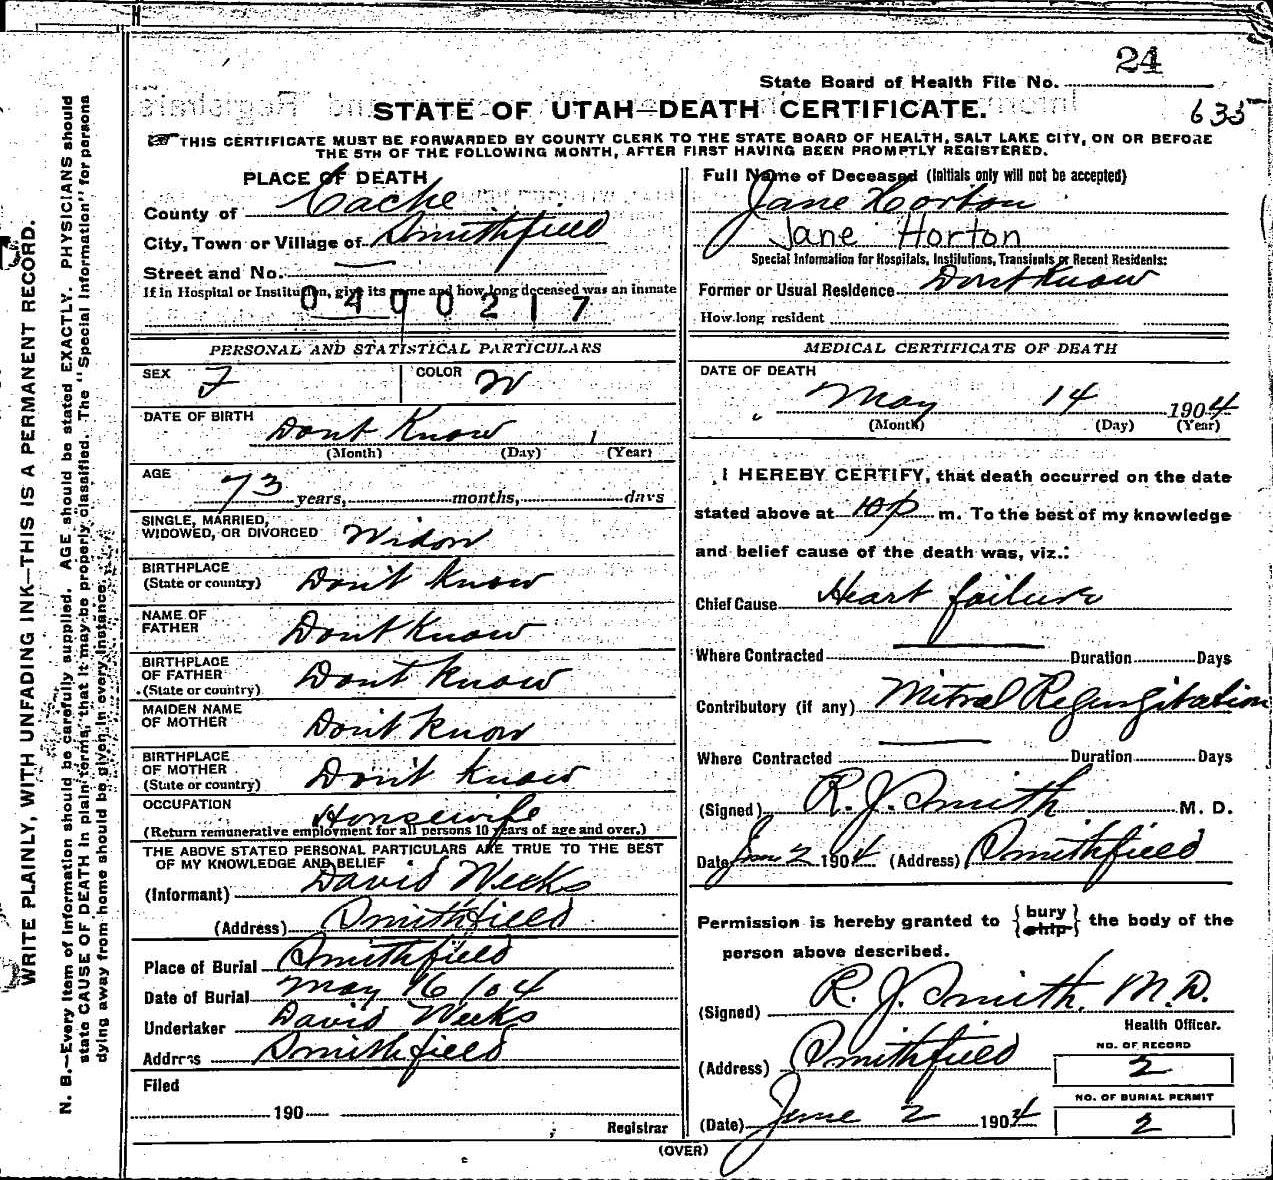 24
State Board of Health File No.
STATE OF UTAH—DEATH CERTIFICATE.
635
THIS CERTIFICATE MUST BE FORWARDED BY COUNTY CLERK TO THE STATE BOARD OF HEALTH, SALT LAKE CITY, ON OR BEFORE
THE 5TH OF THE FOLLOWING MONTH, AFTER FIRST HAVING BEEN PROMPTLY REGISTERED.
WRITE PLAINLY, WITH UNFADING INK—THIS IS A PERMANENT RECORD.
N. B.—Every item of Information should be carefully supplied. AGE should be stated EXACTLY. PHYSICIANS should
state CAUSE OF DEATH in plain terms, that it may be properly classified. The "Special Information" for persons
dying away from home should be given in every instance.
PLACE OF DEATH
County of Cache
City, Town or Village of Smithfield
Street and No. —
If in Hospital or Institution, give its name and how long deceased was an inmate
0400217
PERSONAL AND STATISTICAL PARTICULARS
SEX F COLOR W
DATE OF BIRTH Dont Know
(Month) (Day) (Year)
AGE
73 years, months, days
SINGLE, MARRIED,
WIDOWED, OR DIVORCED Widow
BIRTHPLACE
(State or country) Don't Know
NAME OF
FATHER Dont Know
BIRTHPLACE
OF FATHER
(State or country) Don't Know
MAIDEN NAME
OF MOTHER Don't Know
BIRTHPLACE
OF MOTHER
(State or country) Don't Know
OCCUPATION Housewife
(Return remunerative employment for all persons 10 years of age and over.)
THE ABOVE STATED PERSONAL PARTICULARS ARE TRUE TO THE BEST
OF MY KNOWLEDGE AND BELIEF
(Informant) David Weeks
(Address) Smithfield
Place of Burial Smithfield
Date of Burial May 16 /04
Undertaker David Weeks
Address Smithfield
Filed
190
Registrar
Full Name of Deceased (Initials only will not be accepted)
Jane Horton
Jane Horton
Special Information for Hospitals, Institutions, Transients or Recent Residents:
Former or Usual Residence Dont Know
How long resident
MEDICAL CERTIFICATE OF DEATH
DATE OF DEATH
May 14 1904
(Month) (Day) (Year)
I HEREBY CERTIFY, that death occurred on the date
stated above at 10 p m. To the best of my knowledge
and belief cause of the death was, viz.:
Chief Cause Heart failure
Where Contracted — Duration Days
Contributory (if any) Mitral Regurgitation
Where Contracted — Duration Days
(Signed) R. J. Smith M. D.
Date June 2 1904 (Address) Smithfield
Permission is hereby granted to {bury ship} the body of the
person above described.
(Signed) R. J. Smith. M.D.
Health Officer.
(Address) Smithfield
NO. OF RECORD
2
NO. OF BURIAL PERMIT
2
(Date) June 2 1904
(OVER)